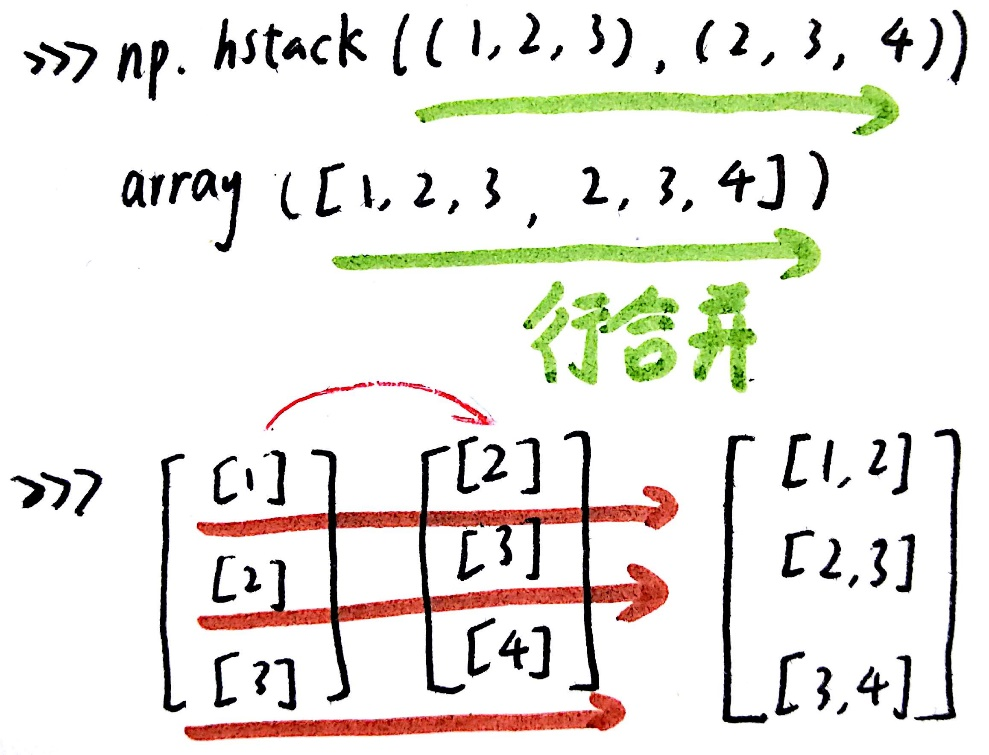 >>> np. hstack ((1,2,3), (2, 3, 4))
array ([1, 2, 3, 2, 3, 4])
行合并
>>> [ [1] ] [ [2] ] [ [1, 2]
[2] [3] [2,3]
[3] [4] [3,4] ]